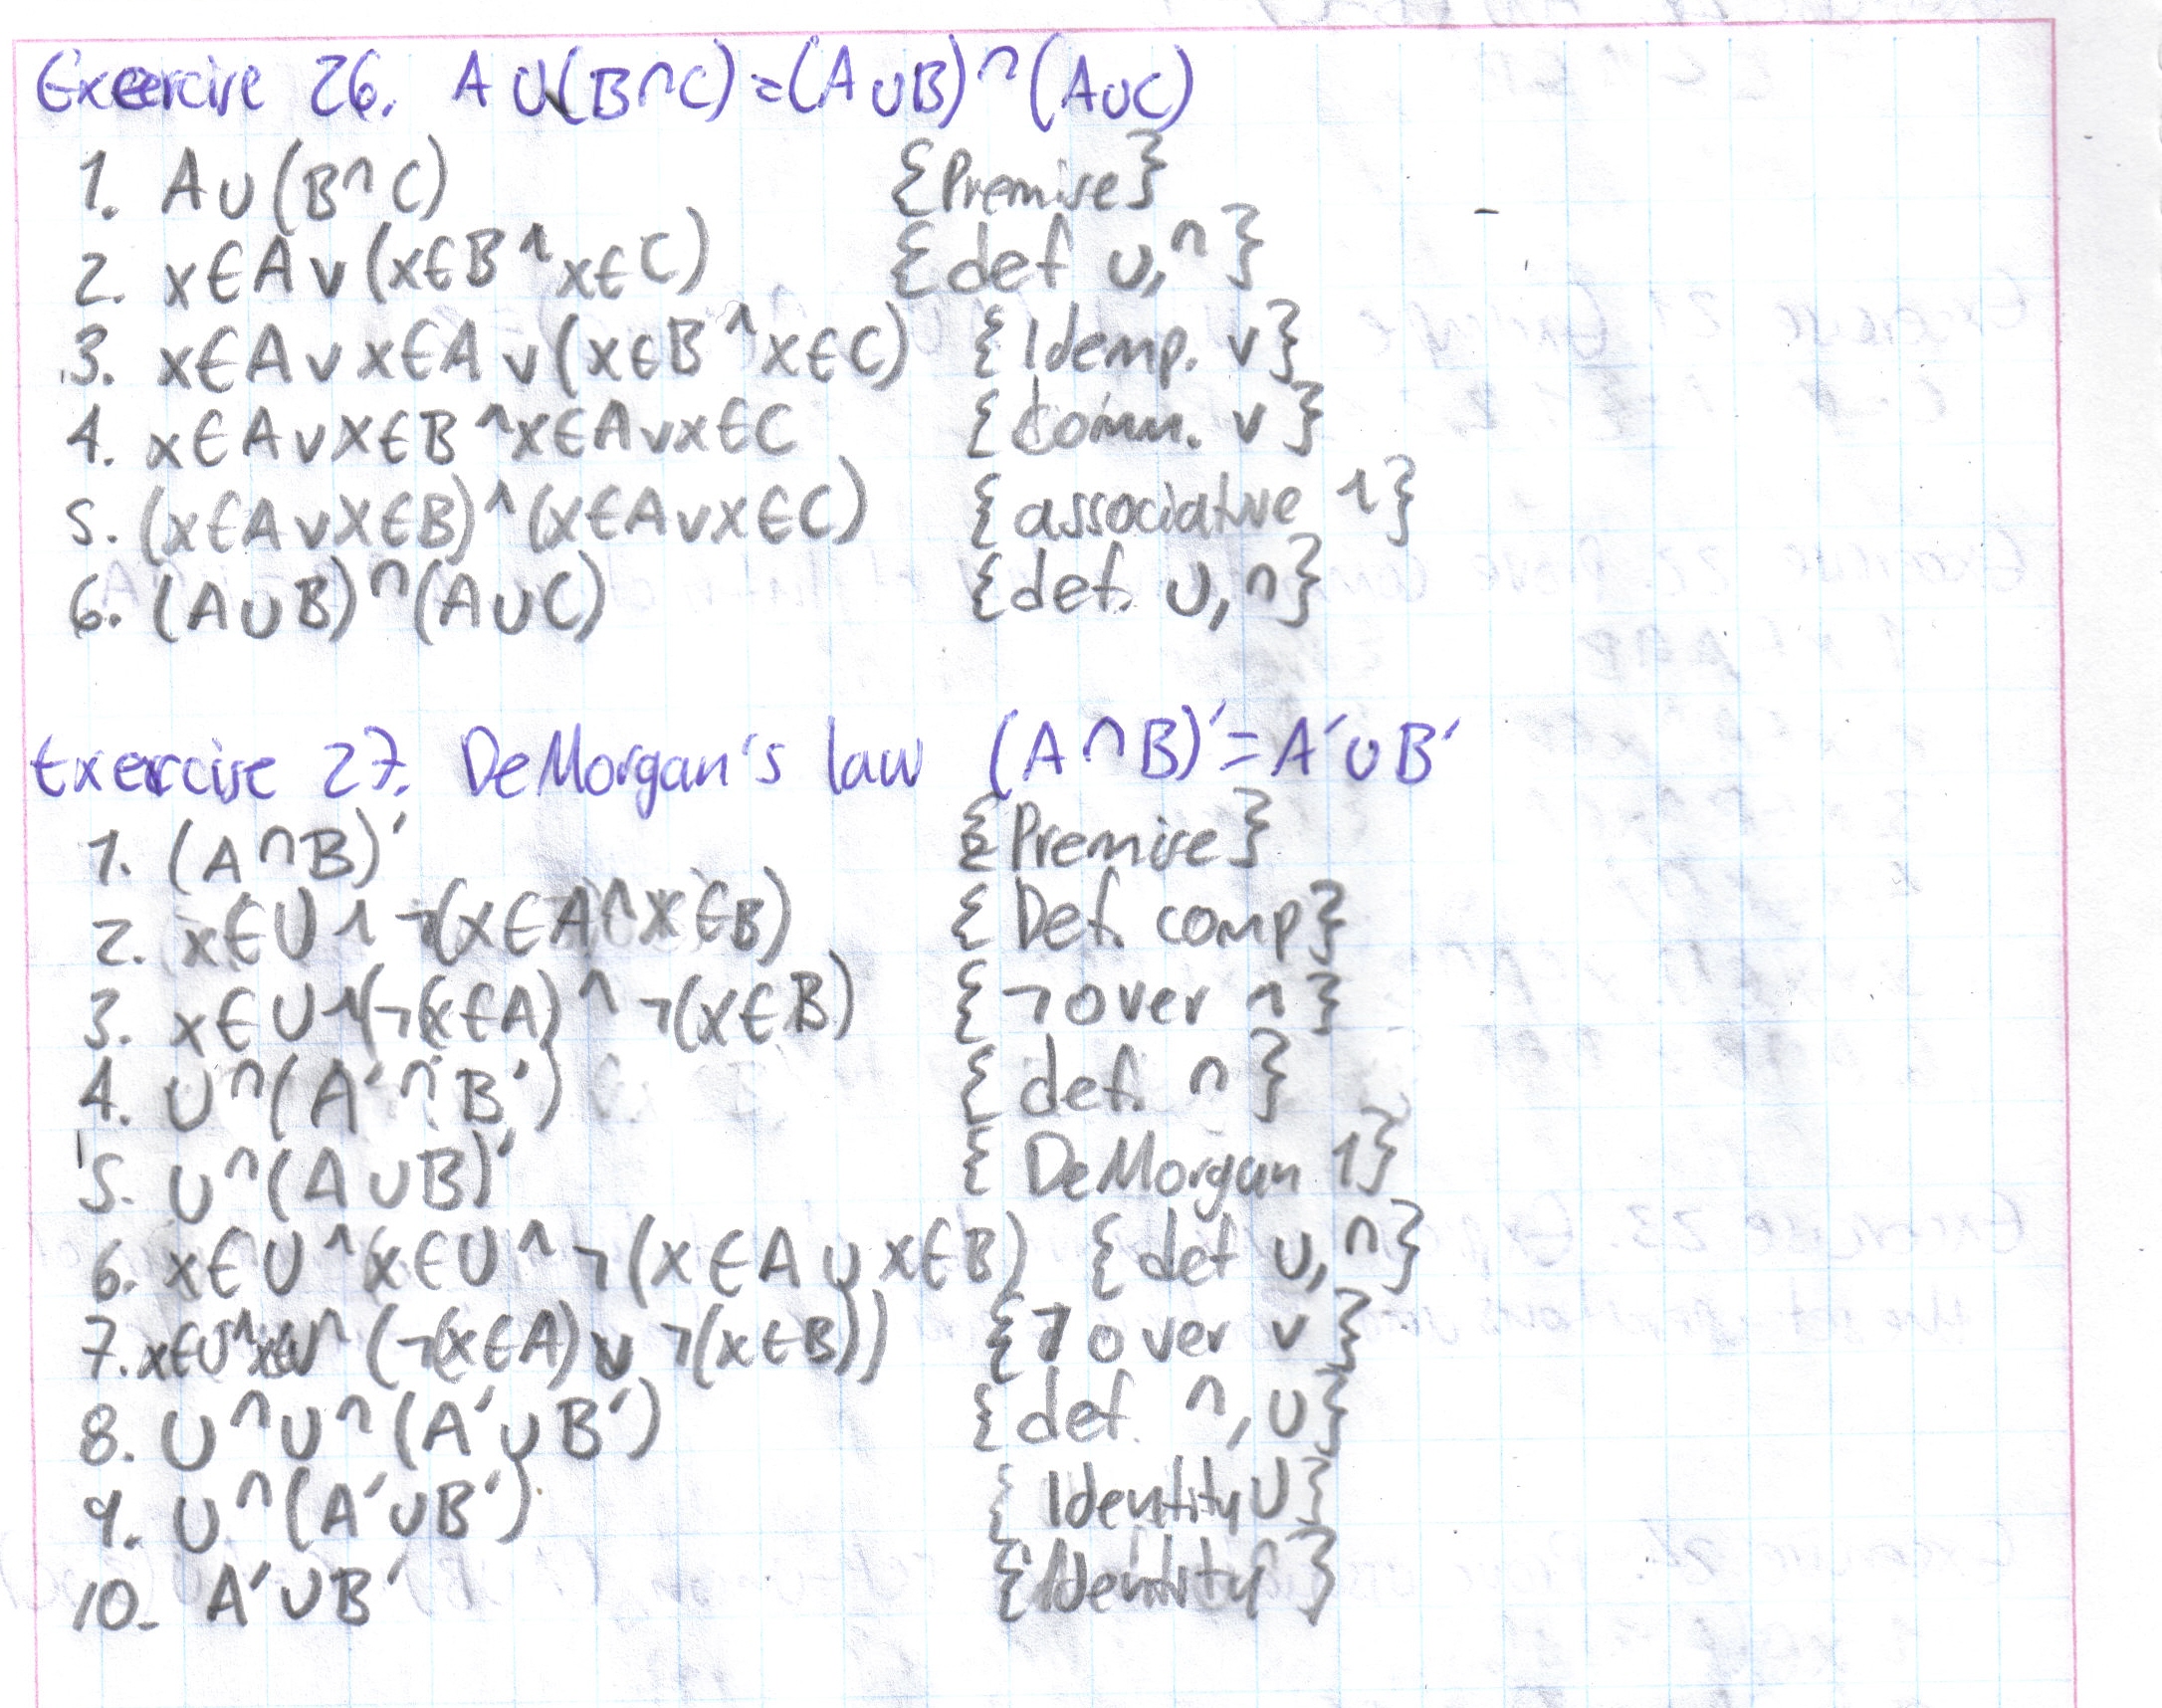 Exercise 26. A∪(B∩C)=(A∪B)∩(A∪C)
1. A∪(B∩C) {Premise}
2. x∈A∨(x∈B∧x∈C) {def ∪,∩}
3. x∈A∨x∈A∨(x∈B∧x∈C) {Idemp. ∨}
4. x∈A∨x∈B∧x∈A∨x∈C {Comm. ∨}
5. (x∈A∨x∈B)∧(x∈A∨x∈C) {associative ∧}
6. (A∪B)∩(A∪C) {def. ∪,∩}
Exercise 27. DeMorgan's law (A∩B)′=A′∪B′
1. (A∩B)′ {Premise}
2. x∈U∧¬(x∈A∧x∈B) {Def. comp}
3. x∈U∧(¬(x∈A)∧¬(x∈B) {¬over ∧}
4. U∩(A′∩B′) {def. ∩}
5. U∩(A∪B)′ {DeMorgan 1}
6. x∈U∧x∈U∧¬(x∈A∪x∈B) {def ∪,∩}
7. x∈U∧x∈U∧(¬(x∈A)∨¬(x∈B)) {¬over ∨}
8. U∩U∩(A′∪B′) {def. ∩,∪}
9. U∩(A′∪B′) {Identity U}
10. A′∪B′ {Identity}